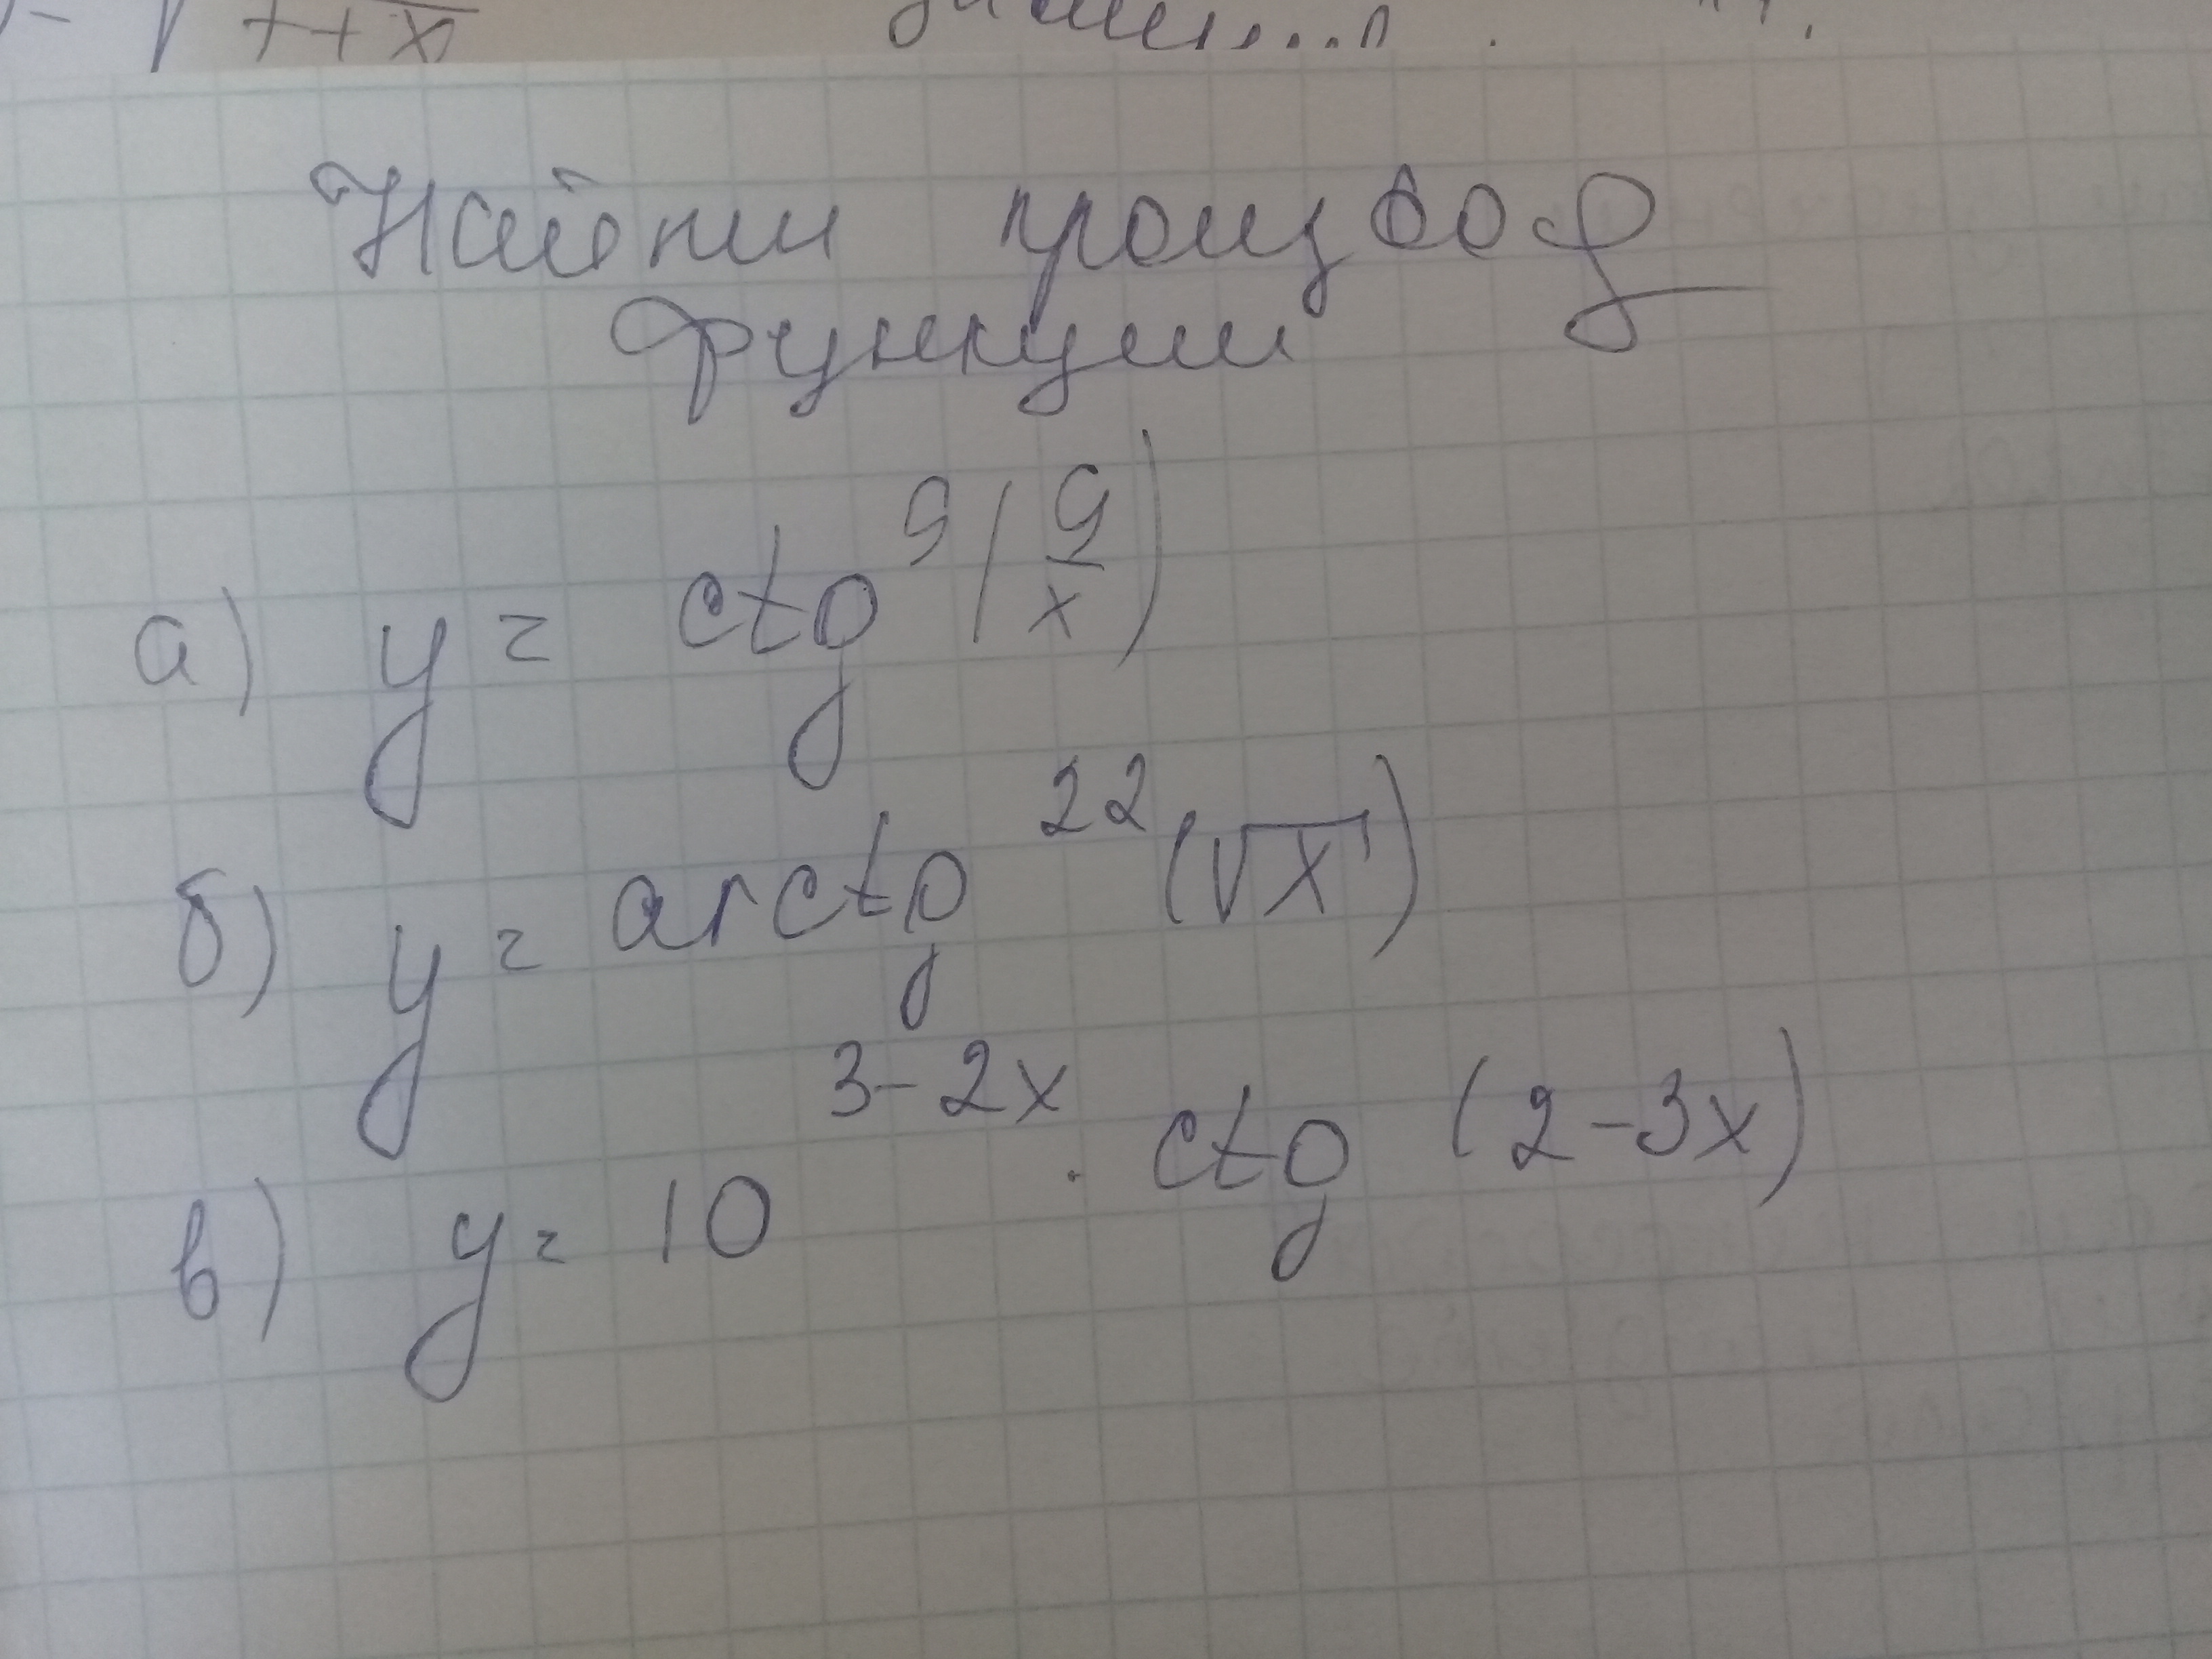 Найти производ
функции
а) y = ctg⁹(9/x)
б) y = arctg²²(√x)
в) y = 10³⁻²ˣ · ctg (2-3x)